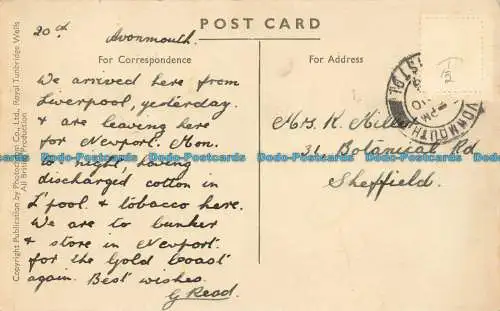 POST CARD
20th Avonmouth.
For Correspondence
For Address
We arrived here from
Liverpool, yesterday.
& are leaving here
for Newport. Mon.
to night, having
discharged cotton in
L'pool. & tobacco here.
We are to bunker
& store in Newport
for the Gold Coast
again. Best wishes.
G Read.
Mrs K.
31, Botanical Rd
Sheffield.
1/2
Copyright Publication by Photochrom Co., Ltd., Royal Tunbridge Wells
All British Production
www.delcampe.net